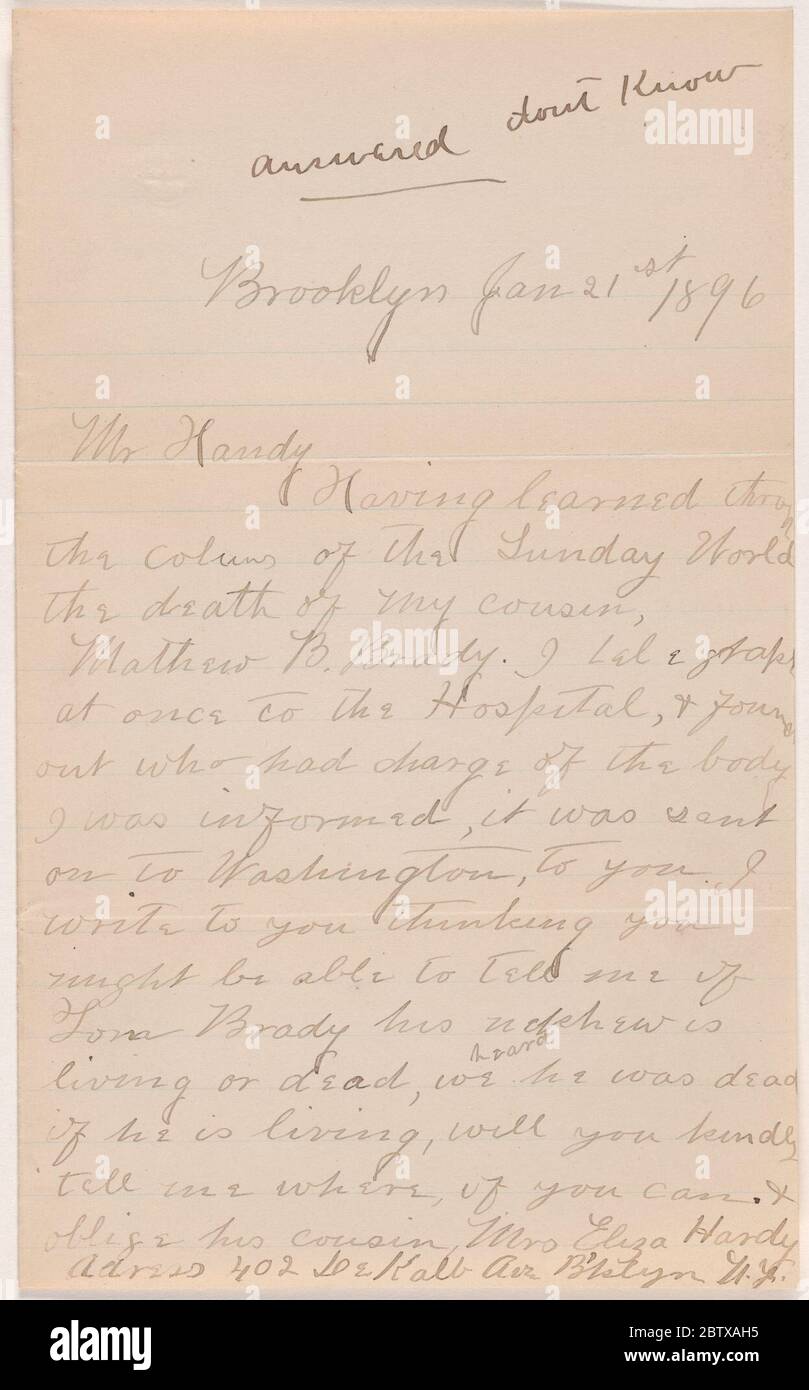 answered dont Know
Brooklyn Jan 21st 1896
Mr Handy
Having learned thro
the colums of the Sunday World
the death of my cousin,
Mathew B. Brady. I telegraph
at once to the Hospital, & found
out who had charge of the body
I was informed, it was sent
on to Washington, to you. I
write to you thinking you
might be able to tell me if
Tom Brady his nephew is
living or dead, we heard he was dead
if he is living, will you kindly
tell me where, if you can. &
oblige his cousin, Mrs Eliza Hardy
Adress 402 De Kalb Ave B'klyn N.Y.
alamy
Image ID: 2BTXAH5
www.alamy.com